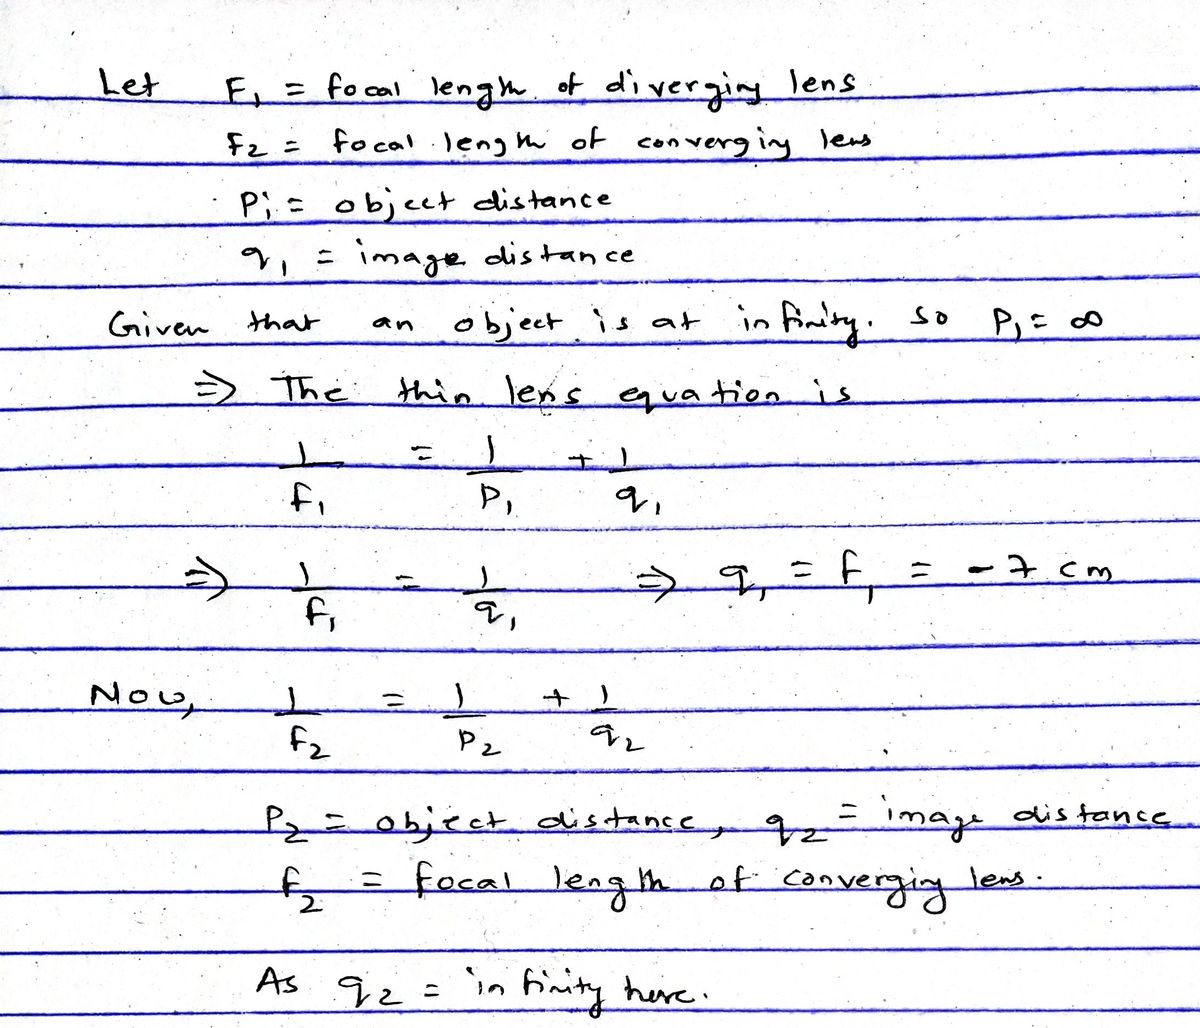 Let F₁ = focal length of diverging lens
F₂ = focal length of converging lens
P₁ = object distance
q₁ = image distance
Given that an object is at infinity. so P₁ = ∞
⇒ The thin lens equation is
1/f₁ = 1/P₁ + 1/q₁
⇒ 1/f₁ = 1/q₁ ⇒ q₁ = f₁ = -7 cm
Now, 1/f₂ = 1/P₂ + 1/q₂
P₂ = object distance, q₂ = image distance
f₂ = focal length of converging lens.
As q₂ = infinity here.